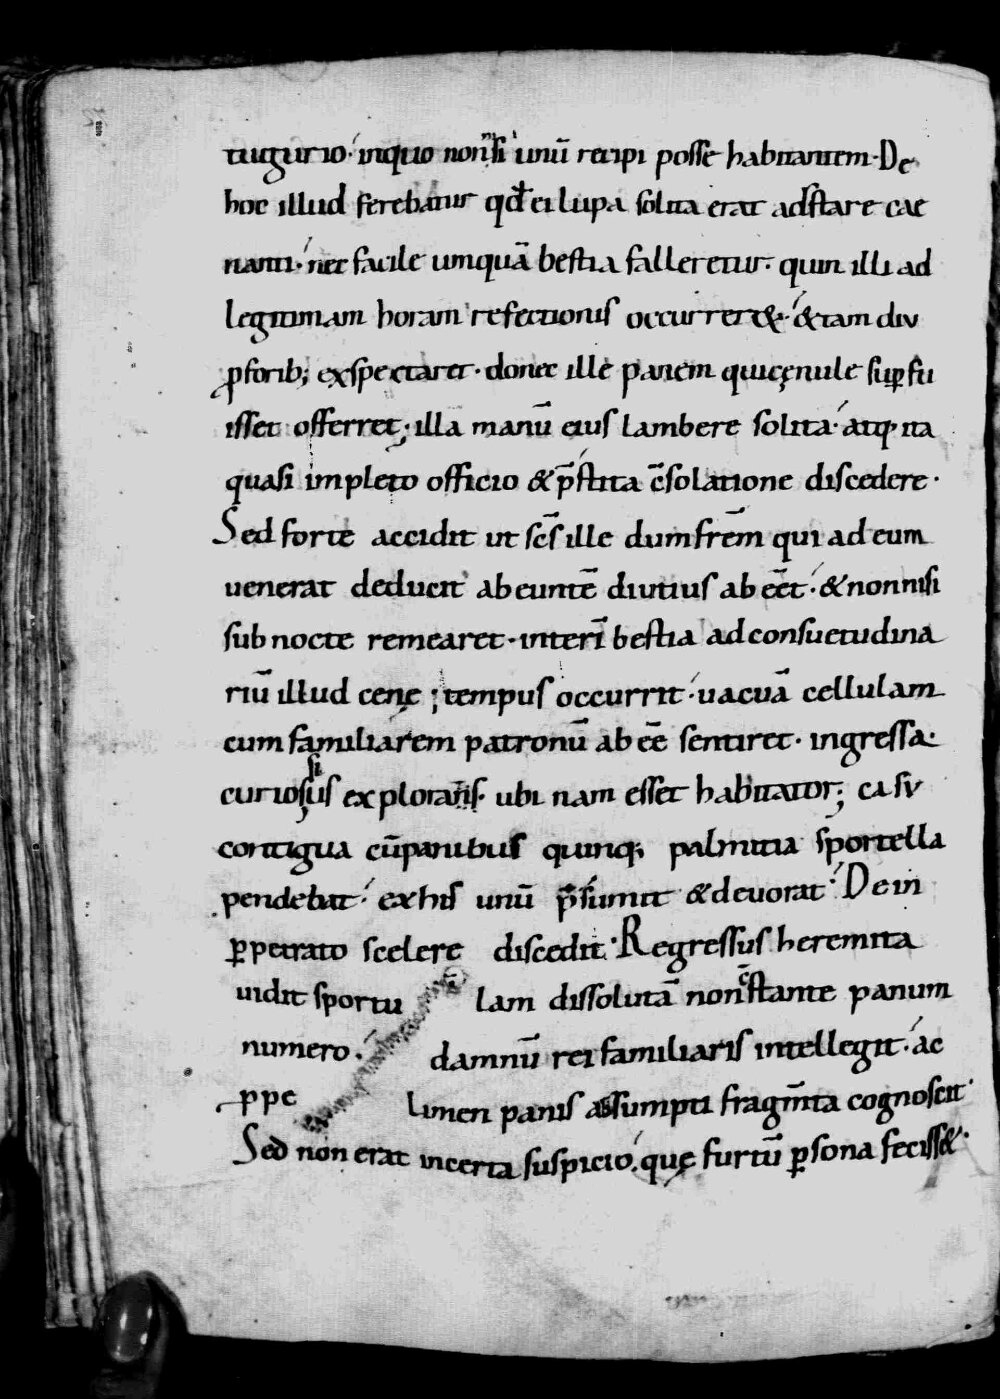 tugurio· inquo non nisi unū recipi posse habitantem· De
hoc illud ferebatur qđ ei lupa solita erat adstare cae
nanti· nec facile umquā bestia falleretur· quin illi ad
legitimam horam refectionis occurrer&· & tam diu
ꝓforib; exspectaret· donec ille panem quicęnule suꝑfu
isset offerret; illa manū eius lambere solita· atq· ita
quasi impleto officio & p̄stita c̄solatione discedere·
Sed forte accidit ut sc̄s ille dum fr̄em qui ad eum
uenerat deducit abeuntē diutius abēet· & non nisi
sub nocte remearet· interī bestia ad consuetudina
riū illud cenę tempus occurrit· uacuā cellulam
cum familiarem patronū abēe sentiret· ingressa·
curiosius explorans· ubi nam esset habitator; casu
contigua cū panibus quinq; palmitia sportella
pendebat· ex his unū p̄sumit & deuorat· Dein
ꝑpetrato scelere discedit· Regressus heremita
uidit sportulam dissolutā non c̄stante panum
numero· damnū rei familiaris intellegit· ac
ppe limen panis assumpti fragm̄ta cognoscit·
Sed non erat incerta suspicio· quę furtū ꝑsona feciss&·